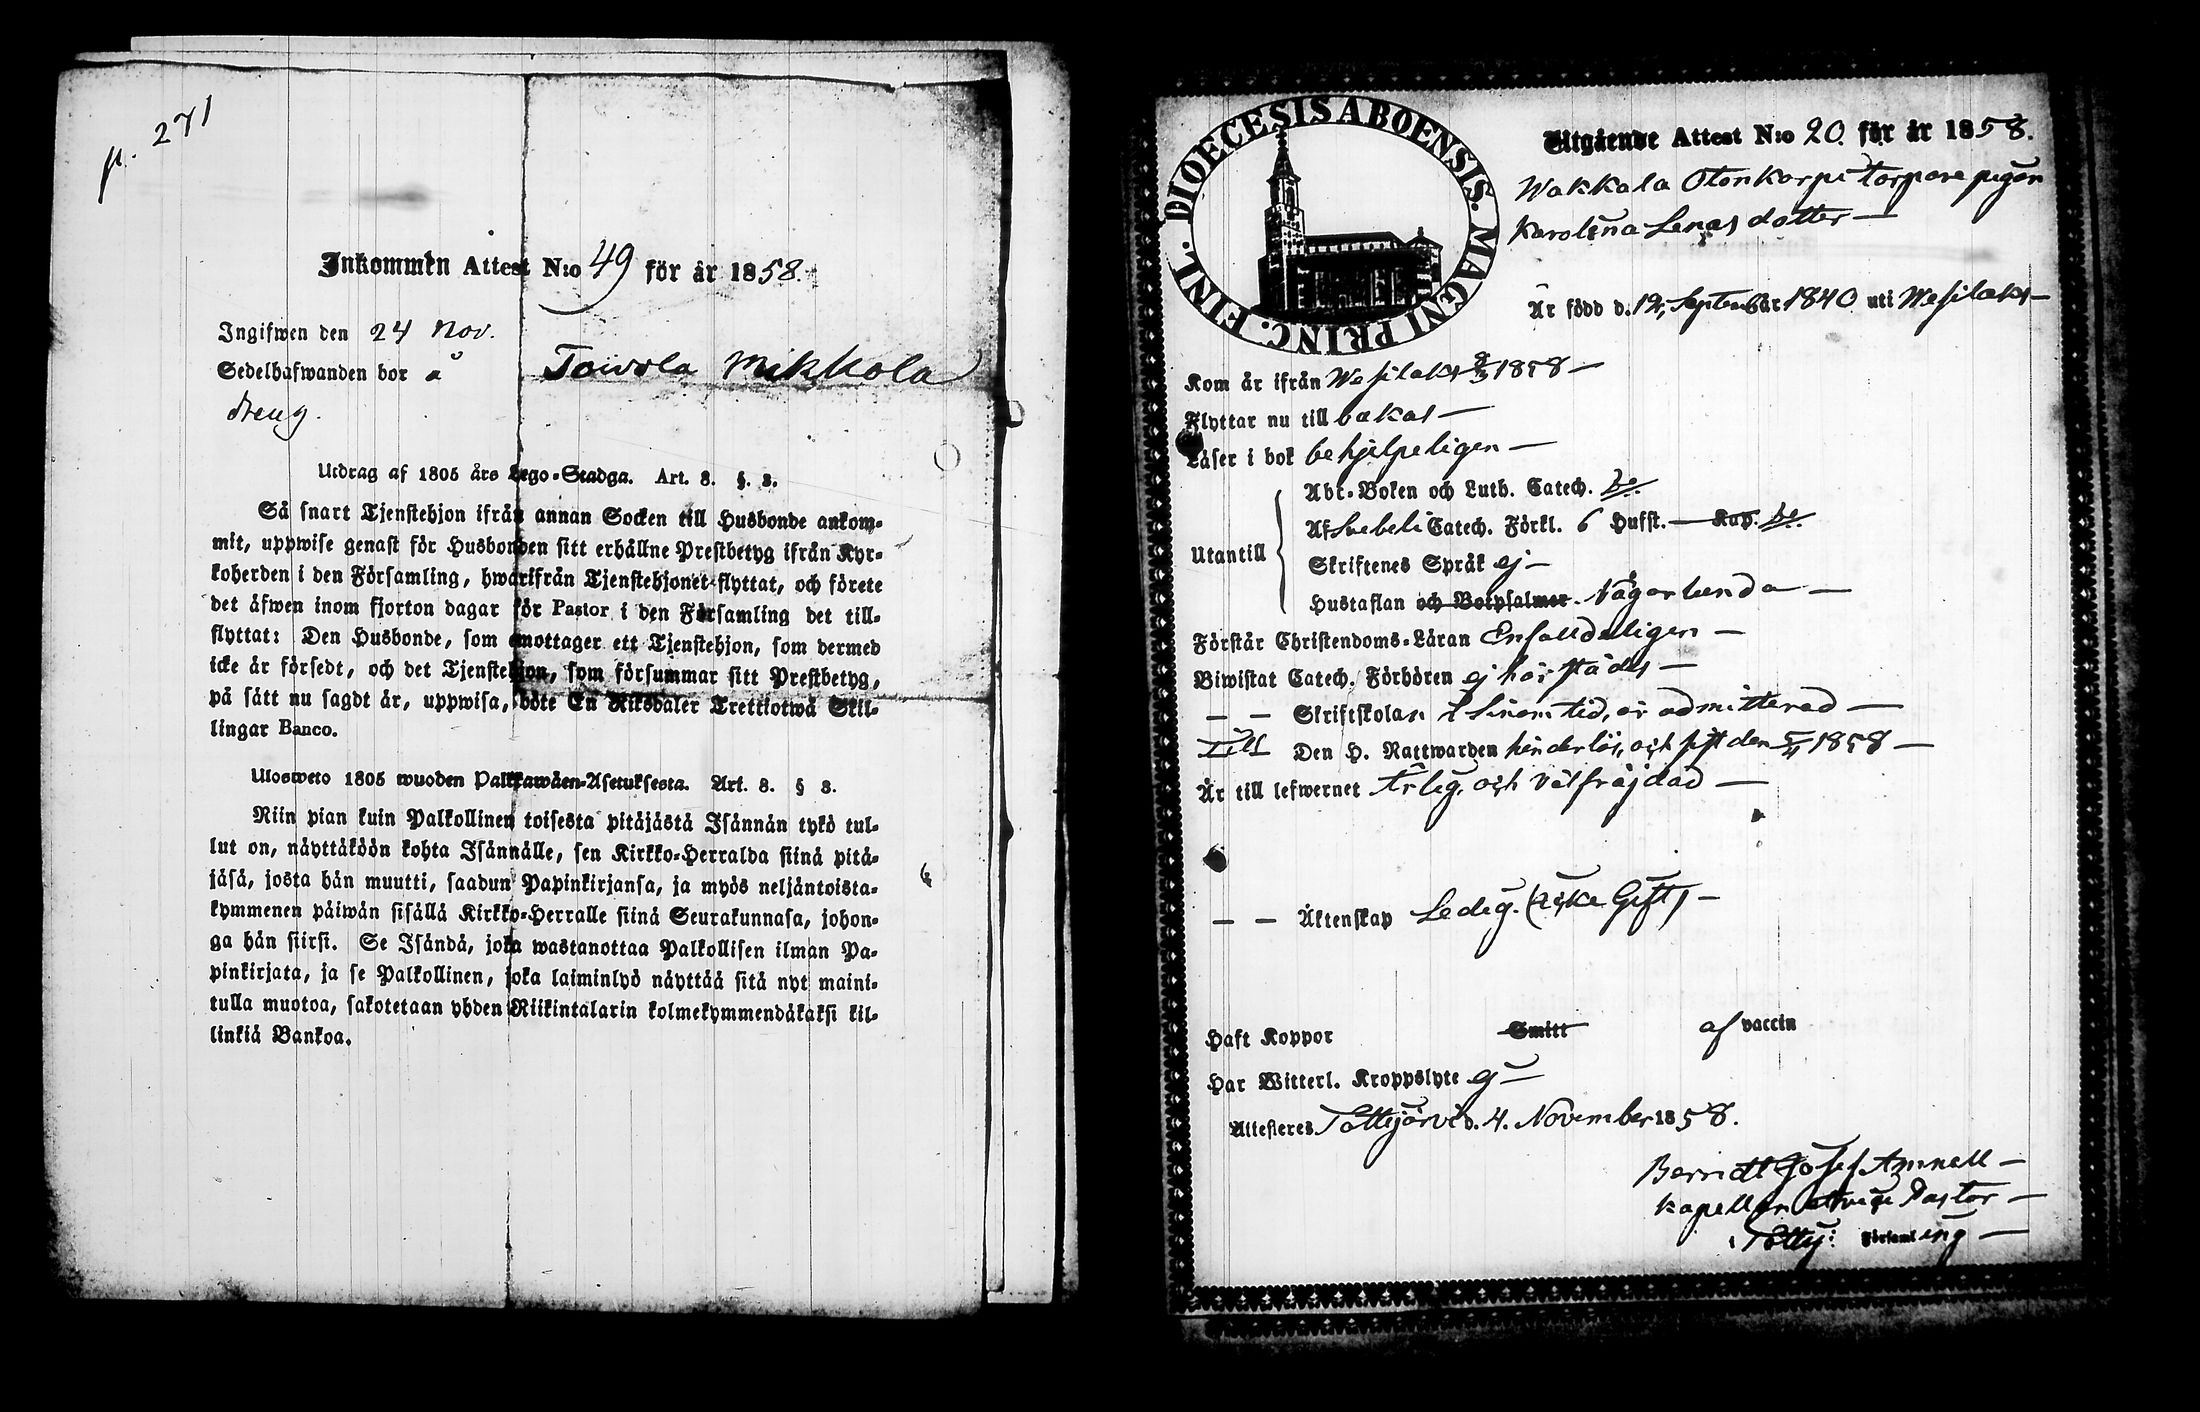 p. 271
Inkommen Attest N:o 49 för år 1858.
Ingifwen den 24 Nov.
Sedelhafwanden bor å Toivola Mikkola
dreng.
Utdrag af 1805 års Lego-Stadga. Art. 8. §. 3.
Så snart Tjenstehjon ifrån annan Socken till Husbonde ankom-
mit, uppwise genast för Husbonden sitt erhållne Prestbetyg ifrån Kyr-
koherden i den Församling, hwarifrån Tjenstehjonet flyttat, och förete
det äfwen inom fjorton dagar för Pastor i den Församling det till-
flyttat: Den Husbonde, som emottager ett Tjenstehjon, som dermed
icke är försedt, och det Tjenstehjon, som försummar sitt Prestbetyg,
på sätt nu sagdt är, uppwisa, böte En Riksdaler Trettiotwå Skil-
lingar Banco.
Ulosweto 1805 wuoden Palkkawäen-Asetuksesta. Art. 8. § 3.
Niin pian kuin Palkollinen toisesta pitäjästä Isännän tykö tul-
lut on, näyttäköön kohta Isännälle, sen Kirkko-Herralda siinä pitä-
jäsä, josta hän muutti, saadun Papinkirjansa, ja myös neljäntoista-
kymmenen päiwän sisällä Kirkko-Herralle siinä Seurakunnasa, johon-
ga hän siirsi. Se Isändä, joka wastanottaa Palkollisen ilman Pa-
pinkirjata, ja se Palkollinen, joka laiminlyö näyttää sitä nyt maini-
tulla muotoa, sakotetaan yhden Riikintalarin kolmekymmendäkaksi kil-
linkiä Bankoa.
DIOECESIS ABOENSIS. MAGNI PRINC. FINL.
Utgående Attest N:o 20. för år 1858.
Wakkala Otonkorpi torpare pigan
Karolina Lenasdotter —
Är född d. 12, September år 1840 uti Wesilaks —
Kom år ifrån Wesilaks 8/3 1858 —
Flyttar nu till bakas —
Läser i bok behjelpeligen —
Utantill
Abc-Boken och Luth. Catech. be.
Af Svebeli Catech. Förkl. 6 Hufst. — Kap. be.
Skriftenes Språk ej —
Hustaflan och Botpsalmer. Någorlunda —
Förstår Christendoms-Läran Enfalldeligen —
Biwistat Catech. Förhören ej härstädes —
— — Skriftskolan i sinom tid, är admitterad —
Till Den H. Nattwarden hinderlös, och sist den 5/4 1858 —
Är till lefwernet Ärlig, och välfräjdad —
— — Äktenskap Ledig. (icke Gift) —
Haft Koppor Smitt af vaccin
Har Witterl. Kroppslyte ej —
Attesteres Tottijärvi d. 4. November 1858.
Berndt Josef Amnell —
Kapellan Pastor —
i Tottij: Församling —